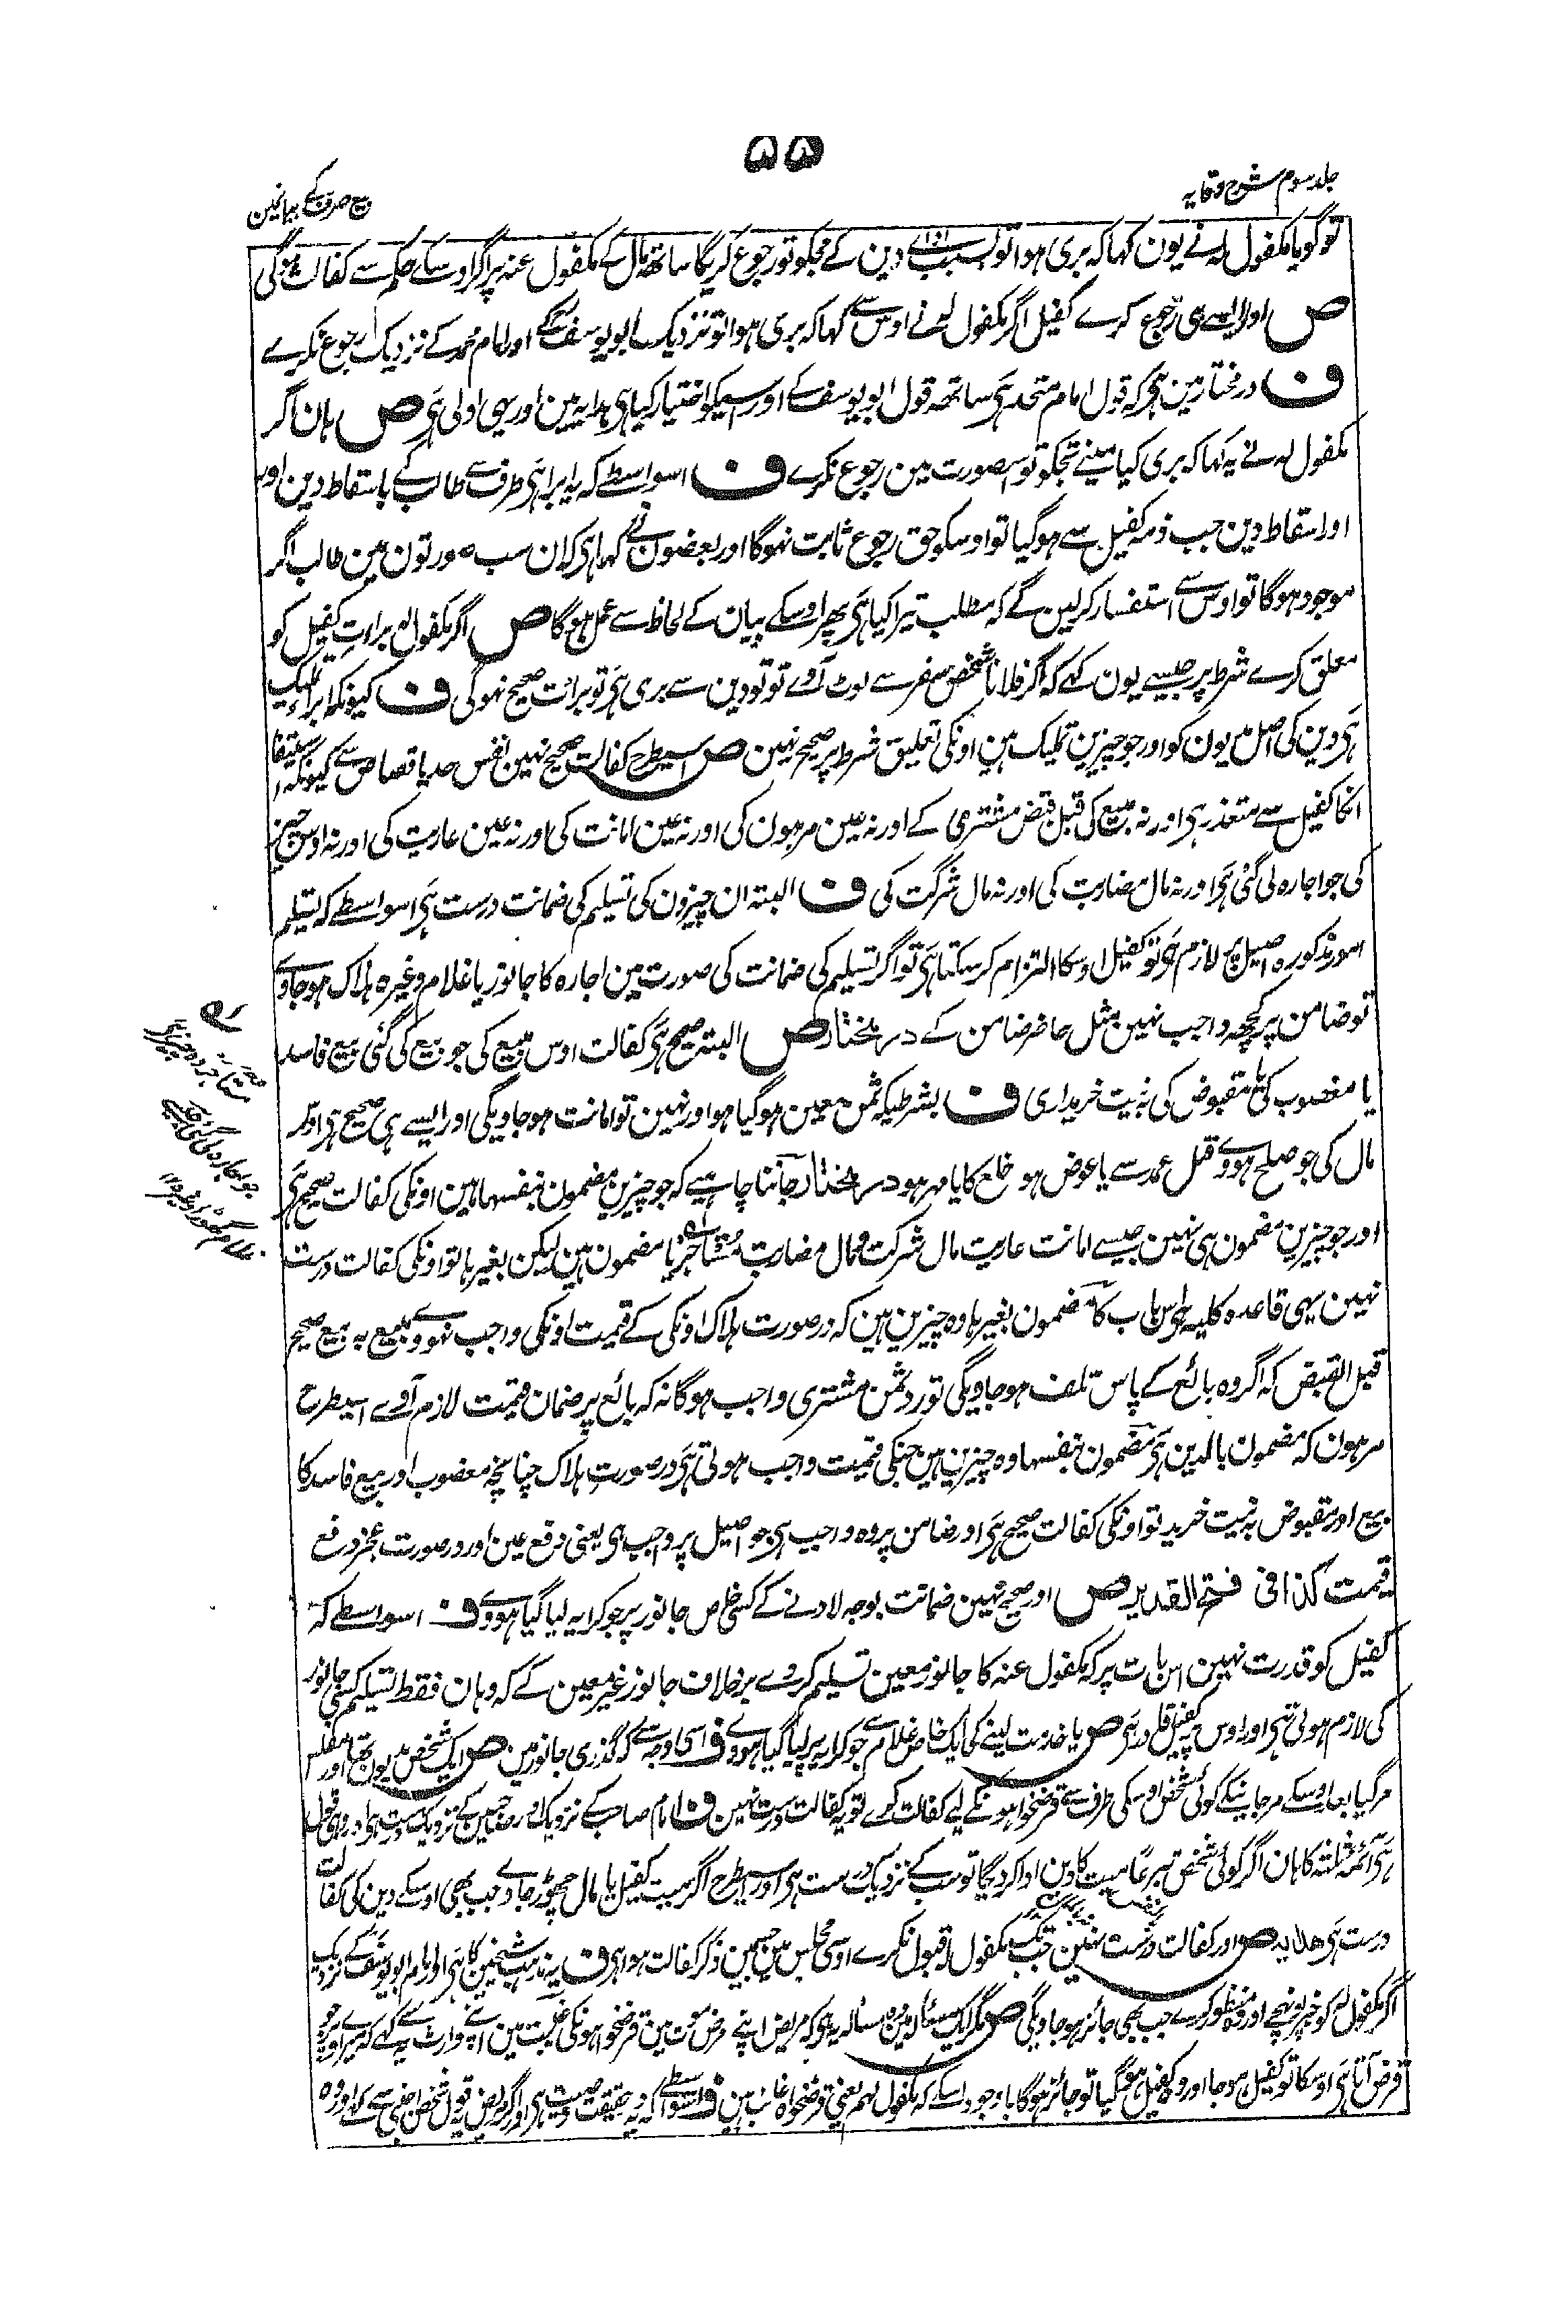 ۵۵
جلد سوم شرح وقایہ
بیع صرف کے بیانمین
تو گویا مکفول لہ نے یون کہا کہ بری ہوا تو بسبب ادائے دین کے مجکو تو رجوع کریگا ساتھ مال کے مکفول عنہ پر اگر اوسکے حکم سے کفالت کی
ص اور ایسے ہی رجوع کرے کفیل اگر مکفول لہ نے اوس سے کہا کہ بری ہوا تو نزدیک ابو یوسف کے اور امام محمد کے نزدیک رجوع نکرے
ف در مختار مین ہی کہ قول امام متحد ہی ساتھ قول ابو یوسف کے اور اسیکو اختیار کیا ہی ہدایہ مین اور یہی اولی ہی ص ہان اگر
مکفول لہ نے یہ کہا کہ بری کیا مینے تجکو تو اسصورت مین رجوع نکرے ف اسواسطے کہ یہ ابرا ہی طرف سے طالب کے باسقاط دین اوس
اور اسقاط دین جب ذمہ کفیل سے ہو گیا تو اوسکو حق رجوع ثابت نہوگا اور بعضون نے کہا ہی کہ ان سب صورتون مین طالب اگر
موجود ہوگا تو اوس سے استفسار کر لین گے کہ مطلب تیرا کیا ہی پھر اوسکے بیان کے لحاظ سے عمل ہوگا ص اگر مکفول لہ براءت کفیل کو
معلق کرے شرط پر جیسے یون کہے کہ اگر فلانا شخص سفر سے لوٹ آوے تو تو دین سے بری ہی تو براءت صحیح نہوگی ف کیونکہ ابراء تملیک
ہی دین کی اصل مدیون کو اور جو چیزین تملیک ہین اونکی تعلیق شرط پر صحیح نہین ص اسیطرح کفالت صحیح نہین نفس حد یا قصاص سے کیونکہ استیفا
انکا کفیل سے متعذر ہی اور نہ مبیع کی قبل قبض مشتری کے اور نہ عین مرہون کی اور نہ عین امانت کی اور نہ عین عاریت کی اور نہ اوس چیز
کی جو اجارہ لی گئی ہی اور نہ مال مضاربت کی اور نہ مال شرکت کی ف البتہ ان چیزون کی تسلیم کی ضمانت درست ہی اسواسطے کہ تسلیم
امور مذکورہ اصیل پر لازم ہی تو کفیل اوسکا التزام کر سکتا ہی تو اگر تسلیم کی ضمانت کی صورت مین اجارہ کا جانور یا غلام وغیرہ ہلاک ہو جاوے
تو ضامن پر کچھ واجب نہین مثل حاضر ضامن کے در مختار ص البتہ صحیح ہی کفالت اوس مبیع کی جو بیع کی گئی بیع فاسد
یا مغصوب کی یا مقبوض کی بہ نیت خریداری ف بشرطیکہ ثمن معین ہو گیا ہو اور نہین تو امانت ہو جاویگی اور ایسے ہی صحیح ہی اوس
مال کی جو صلح ہووے قتل عمد سے یا عوض ہو خلع کا یا مہر ہو در مختار جاننا چاہیے کہ جو چیزین مضمون بنفسہا ہین اونکی کفالت صحیح ہی
اور جو چیزین مضمون ہی نہین جیسے امانت عاریت مال شرکت و مال مضاربت مستاجر یا مضمون ہین لیکن بغیرہا تو اونکی کفالت درست
نہین یہی قاعدہ کلیہ ہی اس باب کا مضمون بغیرہا وہ چیزین ہین کہ در صورت ہلاک اونکی کے قیمت اونکی واجب نہووے مبیع بہ بیع صحیح
قبل القبض کہ اگر وہ بائع کے پاس تلف ہو جاویگی تو رد ثمن مشتری واجب ہوگا نہ کہ بائع پر ضمان قیمت لازم آوے اسیطرح
مرہون کہ مضمون بالدین ہی مضمون بنفسہا وہ چیزین ہین جنکی قیمت واجب ہوتی ہی در صورت ہلاک چنانچہ مغصوب اور بیع فاسد کا
بیع اور مقبوض بہ نیت خرید تو اونکی کفالت صحیح ہی اور ضامن پر وہ واجب ہی جو اصیل پر واجب ہی یعنی دفع عین اور در صورت عجز دفع
قیمت کذا فی فتح القدیر ص اور صحیح نہین ضمانت بوجھ لادنے کے کسی خاص جانور پر جو کرایہ لیا گیا ہووے ف اسواسطے کہ
کفیل کو قدرت نہین اس بات پر کہ مکفول عنہ کا جانور معین تسلیم کر دے بر خلاف جانور غیر معین کے کہ وہان فقط تسلیم کسی جانور
کی لازم ہوتی ہی اور اوس پر کفیل قادر ہی ص یا خدمت لینے کی ایک خاص غلام سے جو کرایہ پر لیا گیا ہووے ف اسی وجہ سے کہ گذری جانور مین ص ایک شخص مدیون تھا اور مفلس
مر گیا بعد اوسکے مر جانیکے کوئی شخص اوسکی طرف سے قرضخواہونکے لیے کفالت کرے تو یہ کفالت درست نہین ف امام صاحب کے نزدیک اور صاحبین کے نزدیک درست ہی اور یہی قول
ہی ائمہ ثلثہ کا ہان اگر کوئی شخص تبرعاً میت کا دین ادا کر دیگا تو سب کے نزدیک درست ہی اور اسیطرح اگر میت کفیل یا مال چھوڑ جاوے جب بھی اوسکے دین کی کفالت
درست ہی ہدایہ ص اور کفالت درست نہین جب تک مکفول لہ قبول نکرے اوسی مجلس مین جسمین ذکر کفالت ہوا ہی ف یہ مذہب شیخین کا ہی اور امام ابو یوسف کے نزدیک
اگر مکفول لہ کو خبر پہونچے اور وہ منظور کرے جب بھی جائز ہو جاویگی ص مگر ایک مسئلہ مین وہ مسئلہ یہ ہی کہ مریض اپنے مرض موت مین قرضخواہونکی غیبت مین اپنے وارث سے کہے کہ میرے اوپر جو
قرض آتا ہی اوسکا تو کفیل ہو جا اور وہ کفیل ہو گیا تو جائز ہوگا باوجود اسکے کہ مکفول لہم یعنی قرضخواہ غائب ہین ف اسواسطے کہ یہ حقیقت وصیت ہی اور اگر مریض یہ قول شخص اجنبی سے کہے اور وہ